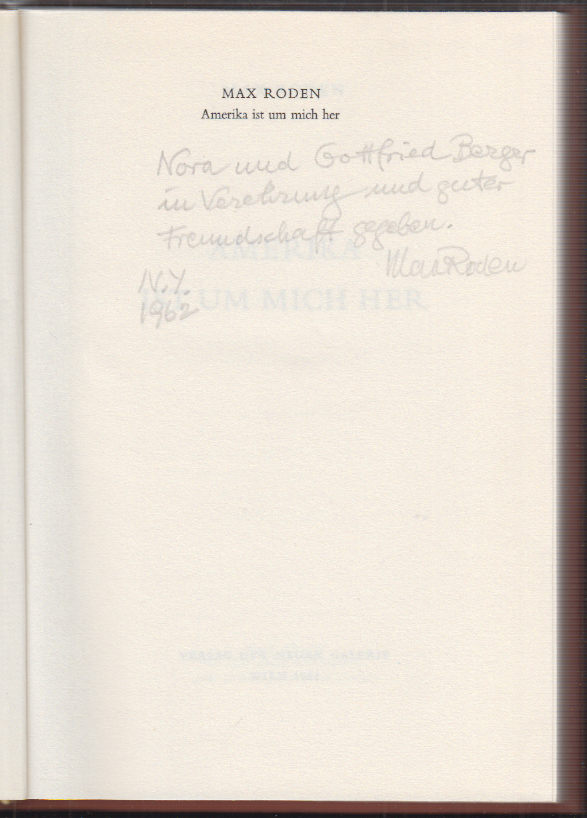 MAX RODEN
Amerika ist um mich her
Nora und Gottfried Berger
in Verehrung und guter
Freundschaft gegeben.
Max Roden
N.Y.
1962
AMERIKA
IST UM MICH HER
VERLAG DER NEUEN GALERIE
WIEN